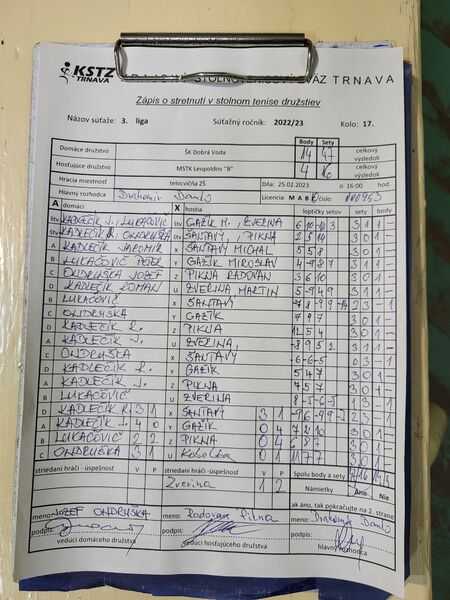 KSTZ
TRNAVA
TRNAVA
Zápis o stretnutí v stolnom tenise družstiev
Názov súťaže: 3. liga Súťažný ročník: 2022/23 Kolo: 17.
Body Sety
Domáce družstvo ŠK Dobrá Voda 14 47 celkový výsledok
Hosťujúce družstvo MSTK Leopoldov "B" 4 16 celkový výsledok
Hracia miestnosť telocvičňa ZŠ Dňa: 25.02.2023 o 16:00 hod.
Hlavný rozhodca Drahomír Danko Licencia: M A B C Číslo:
A domáci X hostia loptičky setov sety body
Štv KADLEČÍK J., LUKAČOVIČ Štv GAŽÍK M., ZVERINA 3 1 1 -
Štv KADLEČÍK R. ONDRUŠKA Štv ŠANTAVÝ, PIKNA 2 5 14 3 0 1 -
A KADLEČÍK JAROMÍR X ŠANTAVÝ MICHAL 5 5 8 3 0 1 -
B LUKAČOVIČ PETER Y GAŽÍK MIROSLAV 4 -9 8 7 3 1 1 -
C ONDRUŠKA JOZEF Z PIKNA RADOVAN 3 6 10 3 0 1 -
D KADLEČÍK ROMAN U ZVERINA MARTIN 5 -9 4 9 3 1 1 -
B LUKAČOVIČ X ŠANTAVÝ 2 3 - 1
C ONDRUŠKA Y GAŽÍK 7 9 7 3 0 1 -
D KADLEČÍK R. Z PIKNA 12 5 4 3 0 1 -
A KADLEČÍK J. U ZVERINA -8 9 5 2 3 1 1 -
C ONDRUŠKA X ŠANTAVÝ -6 -6 -5 0 3 - 1
D KADLEČÍK R. Y GAŽÍK 5 4 7 3 0 1 -
A KADLEČÍK J. Z PIKNA 7 5 7 3 0 1 -
B LUKAČOVIČ U ZVERINA 1 3 - 1
D KADLEČÍK R. 3 1 X ŠANTAVÝ 3 1 2 3 - 1
A KADLEČÍK J. 4 0 Y GAŽÍK 0 4 7 2 10 3 0 1 -
B LUKAČOVIČ 2 2 Z PIKNA 0 4 6 8 7 3 0 1 -
C ONDRUŠKA 3 1 U 0 1 11 7 7 3 0 1 -
striedaní hráči - úspešnosť V P striedaní hráči - úspešnosť V P Spolu body a sety
Zverina 1 2 Námietky Áno Nie
ak áno, tak pokračujte na 2. strane
meno: JOZEF ONDRUŠKA meno: Radovan Pikna meno: Drahomír Danko
podpis: podpis: podpis:
vedúci domáceho družstva vedúci hosťujúceho družstva hlavný rozhodca